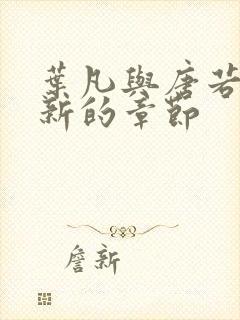 葉凡與唐若
新的章節
詹新